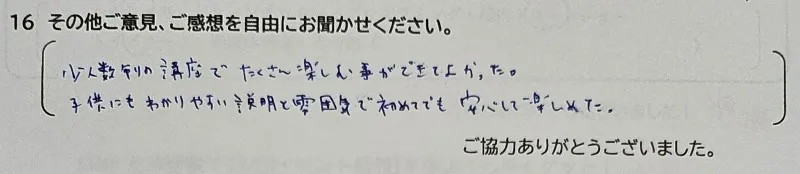 16 その他ご意見、ご感想を自由にお聞かせください。
少人数制の講座でたくさん楽しむ事ができてよかった。
子供にもわかりやすい説明と雰囲気で初めてでも安心して楽しめた。
ご協力ありがとうございました。